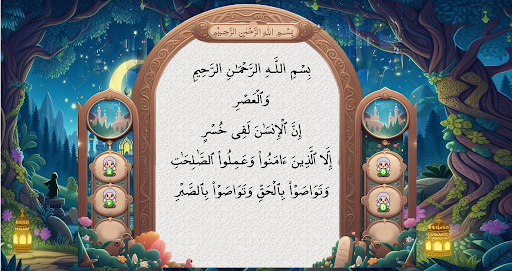 بِسْمِ اللَّهِ الرَّحْمَٰنِ الرَّحِيمِ
بِسْمِ اللَّـهِ الرَّحْمَـٰنِ الرَّحِيمِ
وَٱلْعَصْرِ
إِنَّ ٱلْإِنسَـٰنَ لَفِى خُسْرٍ
إِلَّا ٱلَّذِينَ ءَامَنُوا۟ وَعَمِلُوا۟ ٱلصَّـٰلِحَـٰتِ
وَتَوَاصَوْا۟ بِٱلْحَقِّ وَتَوَاصَوْا۟ بِٱلصَّبْرِ